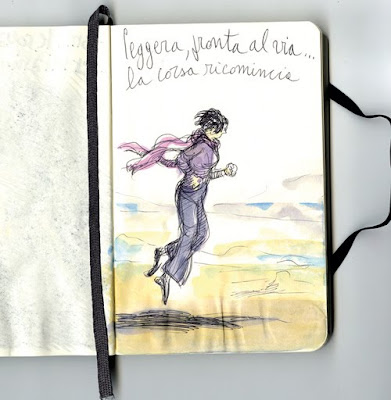 leggera, pronta al via...
la corsa ricomincia